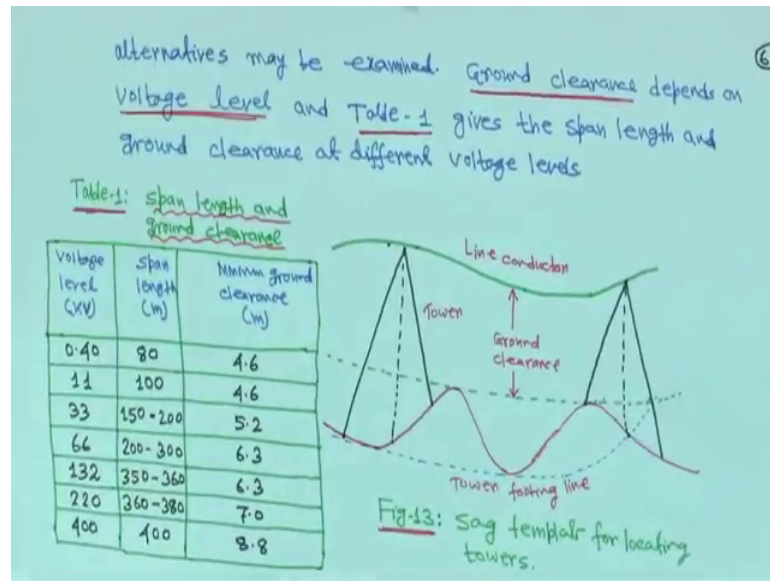 6
alternatives may be examined. Ground clearance depends on
voltage level and Table-1 gives the span length and
ground clearance at different voltage levels
Table-1: span length and
ground clearance
voltage level (KV) span length (m) Minimum ground clearance (m)
0.40 80 4.6
11 100 4.6
33 150-200 5.2
66 200-300 6.3
132 350-360 6.3
220 360-380 7.0
400 400 8.8
Line conductor
Tower
Ground
clearance
Tower footing line
Fig-13: Sag template for locating
towers.